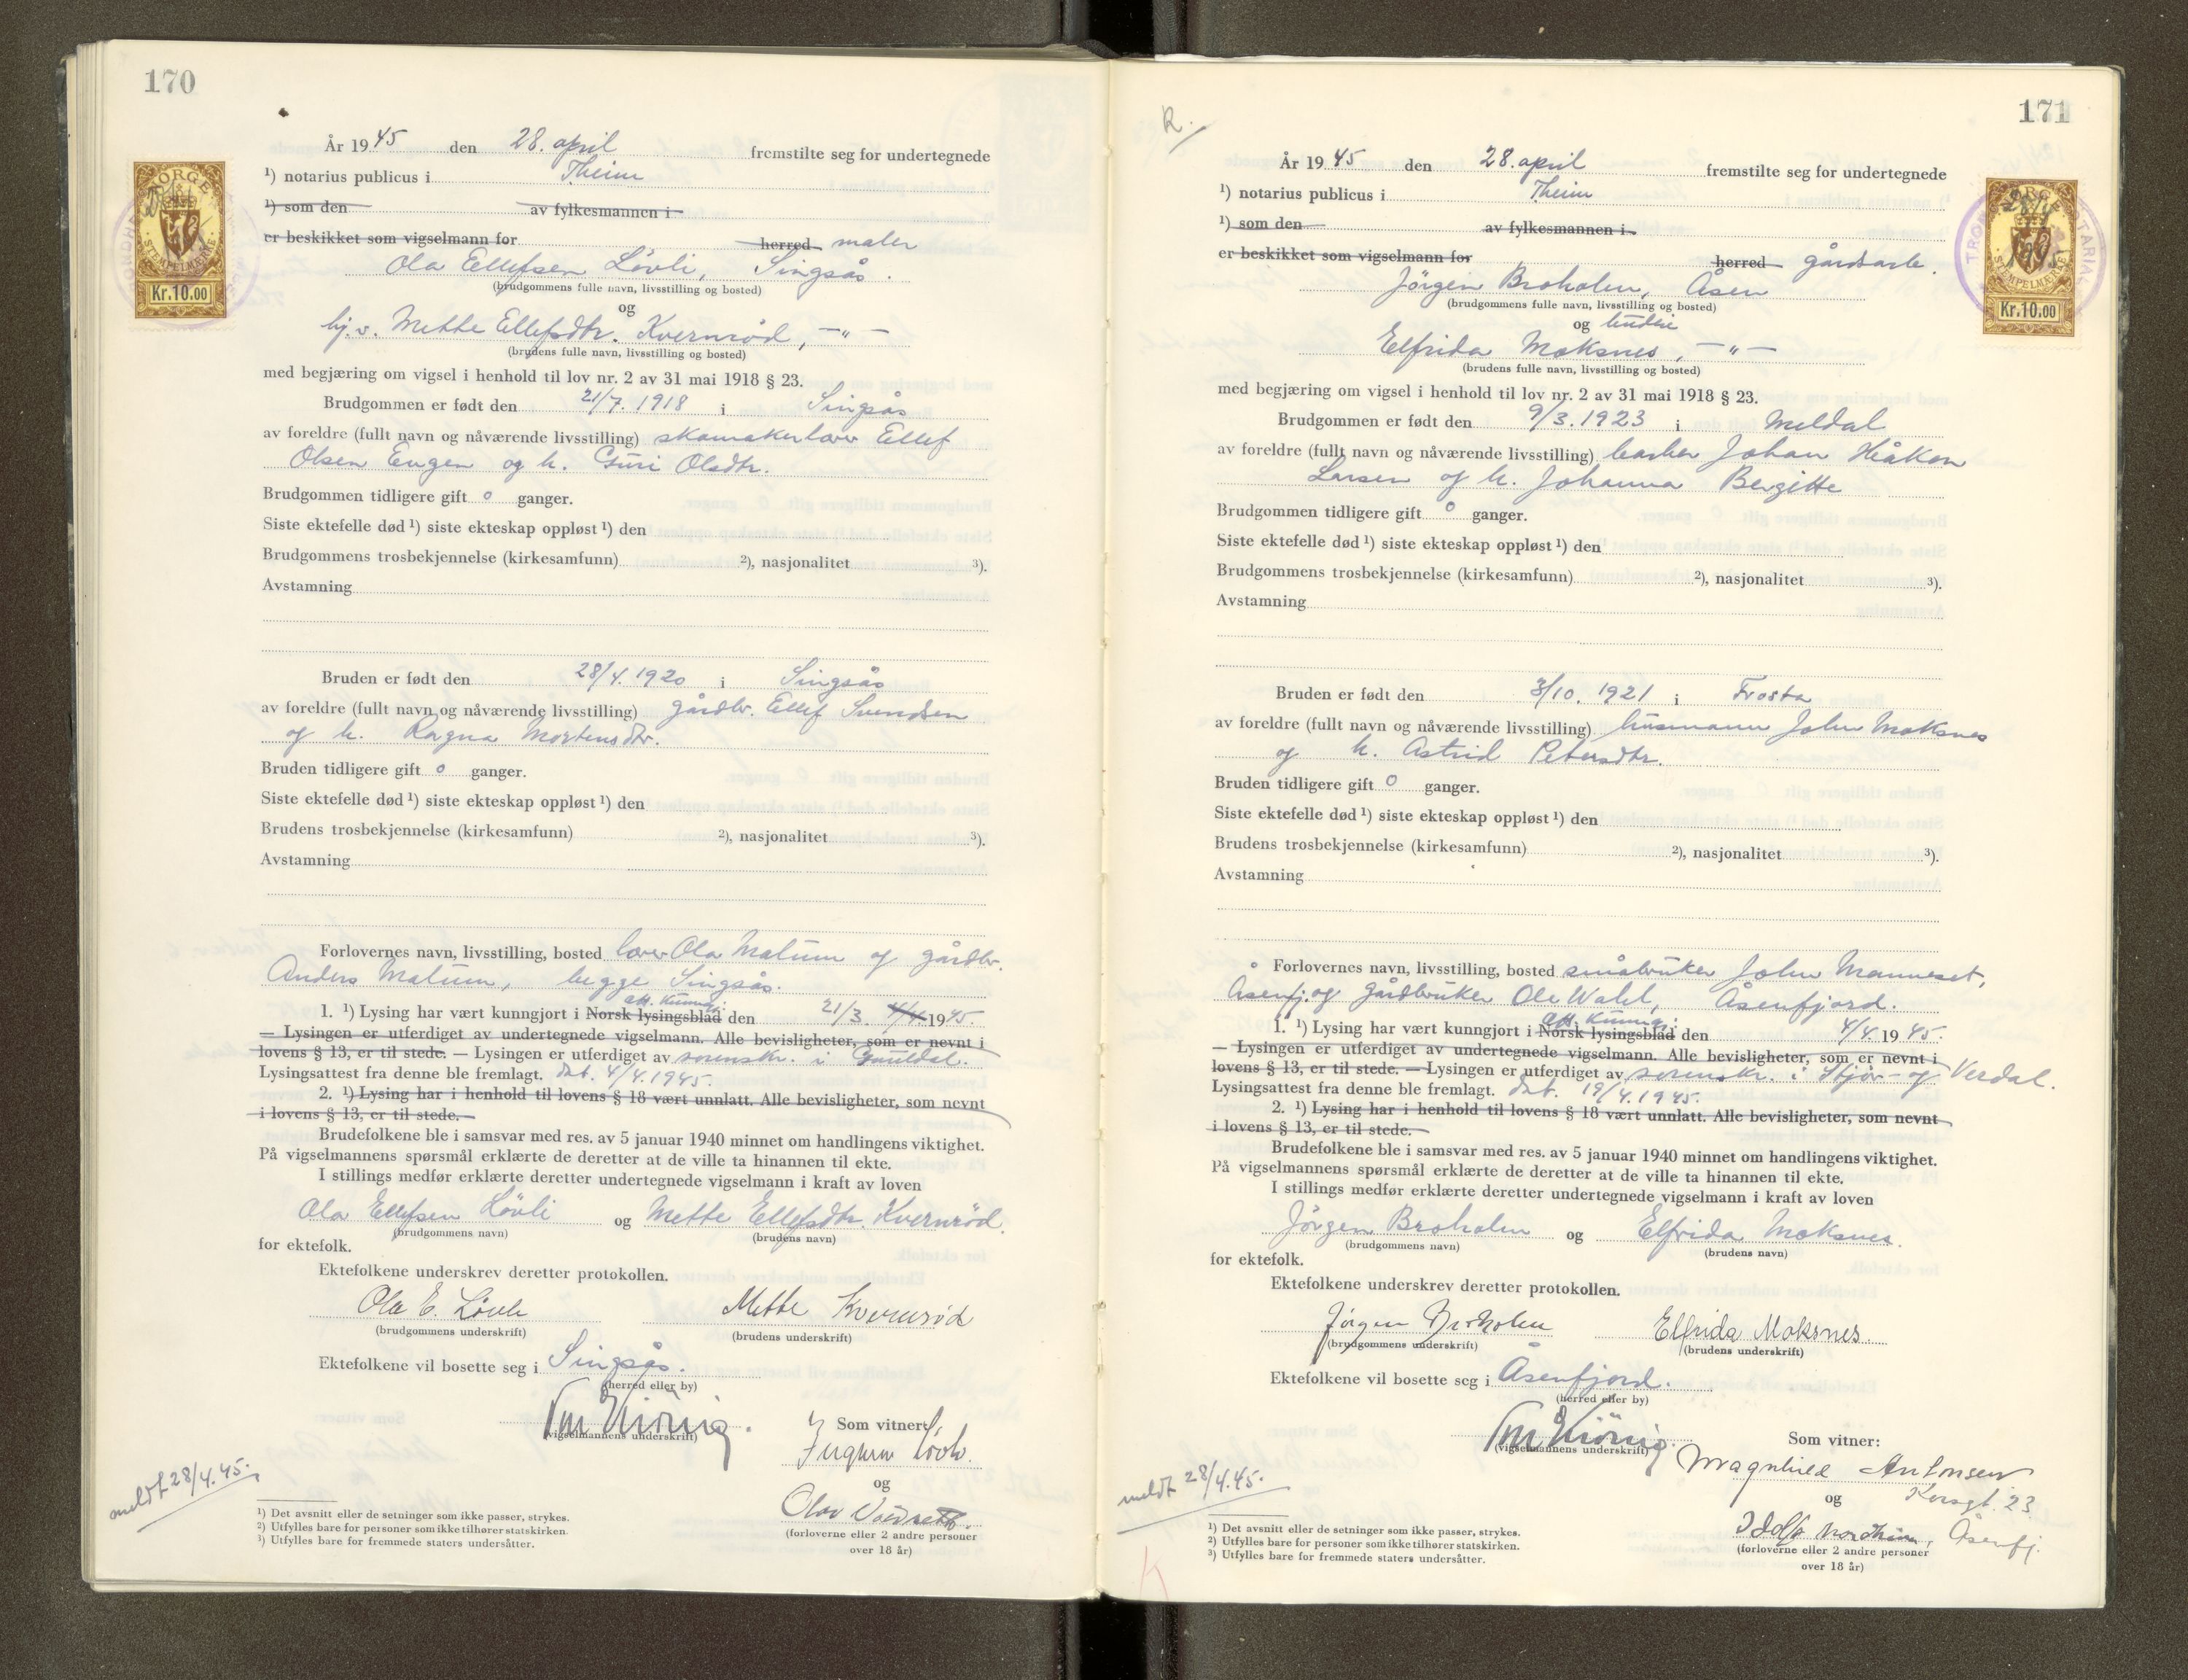 170
År 1945 den 28. april fremstilte seg for undertegnede
¹) notarius publicus i Theim
¹) som den av fylkesmannen i
er beskikket som vigselmann for herred maler
Ola Ellefsen Lövli, Singsås.
(brudgommens fulle navn, livsstilling og bosted)
og
hj.v. Mette Ellefsdtr. Kvernröd, —"—
(brudens fulle navn, livsstilling og bosted)
med begjæring om vigsel i henhold til lov nr. 2 av 31 mai 1918 § 23.
Brudgommen er født den 21/7. 1918 i Singsås
av foreldre (fullt navn og nåværende livsstilling) skomaker Ellef
Olsen Engen og h. Guri Olsdtr.
Brudgommen tidligere gift 0 ganger.
Siste ektefelle død ¹) siste ekteskap oppløst ¹) den
Brudgommens trosbekjennelse (kirkesamfunn) ²), nasjonalitet ³).
Avstamning
Bruden er født den 28/4. 1920 i Singsås
av foreldre (fullt navn og nåværende livsstilling) gårdbr. Ellef Svendsen
og h. Ragna Mortensdtr.
Bruden tidligere gift 0 ganger.
Siste ektefelle død ¹) siste ekteskap oppløst ¹) den
Brudens trosbekjennelse (kirkesamfunn) ²), nasjonalitet ³).
Avstamning
Forlovernes navn, livsstilling, bosted Ola Matum og gårdbr.
Anders Matum, begge Singsås.
off. kunng.
1. ¹) Lysing har vært kunngjort i Norsk lysingsblad den 21/3. 4/4. 1945.
— Lysingen er utferdiget av undertegnede vigselmann. Alle bevisligheter, som er nevnt i
lovens § 13, er til stede. — Lysingen er utferdiget av sorenskr. i Gauldal.
Lysingsattest fra denne ble fremlagt. dat. 4/4.1945.
2. ¹) Lysing har i henhold til lovens § 18 vært unnlatt. Alle bevisligheter, som nevnt
i lovens § 13, er til stede.
Brudefolkene ble i samsvar med res. av 5 januar 1940 minnet om handlingens viktighet.
På vigselmannens spørsmål erklærte de deretter at de ville ta hinannen til ekte.
I stillings medfør erklærte deretter undertegnede vigselmann i kraft av loven
Ola Ellefsen Lövli og Mette Ellefsdtr. Kvernröd.
(brudgommens navn) (brudens navn)
for ektefolk.
Ektefolkene underskrev deretter protokollen.
Ola E. Lövli Mette Kvernröd
(brudgommens underskrift) (brudens underskrift)
Ektefolkene vil bosette seg i Singsås.
(herred eller by)
(vigselmannens underskrift)
Som vitner:
og
Olav
(forloverne eller 2 andre personer
over 18 år)
meldt 28/4.45.
¹) Det avsnitt eller de setninger som ikke passer, strykes.
²) Utfylles bare for personer som ikke tilhører statskirken.
³) Utfylles bare for fremmede staters undersåtter.
NORGE
STEMPELMERKE
Kr.10.00
171
R.
År 1945 den 28. april fremstilte seg for undertegnede
¹) notarius publicus i Theim
¹) som den av fylkesmannen i
er beskikket som vigselmann for herred gårdsarb.
Jörgen Broholm, Åsen
(brudgommens fulle navn, livsstilling og bosted)
og
Elfrida Moksnes, —"—
(brudens fulle navn, livsstilling og bosted)
med begjæring om vigsel i henhold til lov nr. 2 av 31 mai 1918 § 23.
Brudgommen er født den 9/3. 1923 i Meldal
av foreldre (fullt navn og nåværende livsstilling) Johan Håkon
Larsen og h. Johanna Bergitte
Brudgommen tidligere gift 0 ganger.
Siste ektefelle død ¹) siste ekteskap oppløst ¹) den
Brudgommens trosbekjennelse (kirkesamfunn) ²), nasjonalitet ³).
Avstamning
Bruden er født den 3/10. 1921 i Frosta
av foreldre (fullt navn og nåværende livsstilling) husmann John Moksnes
og h. Astrid Petersdtr.
Bruden tidligere gift 0 ganger.
Siste ektefelle død ¹) siste ekteskap oppløst ¹) den
Brudens trosbekjennelse (kirkesamfunn) ²), nasjonalitet ³).
Avstamning
Forlovernes navn, livsstilling, bosted småbruker John Manneset,
Åsenfj. og gårdbruker Ole Wahl, Åsenfjord.
off. kunng.
1. ¹) Lysing har vært kunngjort i Norsk lysingsblad den 4/4. 1945.
— Lysingen er utferdiget av undertegnede vigselmann. Alle bevisligheter, som er nevnt i
lovens § 13, er til stede. — Lysingen er utferdiget av sorenskr. i Stjør- og Verdal.
Lysingsattest fra denne ble fremlagt. dat. 19/4.1945.
2. ¹) Lysing har i henhold til lovens § 18 vært unnlatt. Alle bevisligheter, som nevnt
i lovens § 13, er til stede.
Brudefolkene ble i samsvar med res. av 5 januar 1940 minnet om handlingens viktighet.
På vigselmannens spørsmål erklærte de deretter at de ville ta hinannen til ekte.
I stillings medfør erklærte deretter undertegnede vigselmann i kraft av loven
Jörgen Broholm og Elfrida Moksnes.
(brudgommens navn) (brudens navn)
for ektefolk.
Ektefolkene underskrev deretter protokollen.
Jörgen Broholm Elfrida Moksnes.
(brudgommens underskrift) (brudens underskrift)
Ektefolkene vil bosette seg i Åsenfjord.
(herred eller by)
(vigselmannens underskrift)
Som vitner:
Magnhild Antonsen
og Korsgt. 23
Nordheim, Åsenfj.
(forloverne eller 2 andre personer
over 18 år)
meldt 28/4.45.
¹) Det avsnitt eller de setninger som ikke passer, strykes.
²) Utfylles bare for personer som ikke tilhører statskirken.
³) Utfylles bare for fremmede staters undersåtter.
NORGE
STEMPELMERKE
Kr.10.00